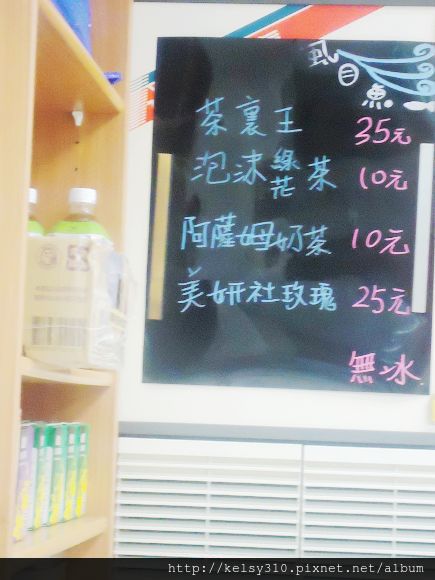 虱
目
魚
茶裏王 35元
泡沫綠茶 10元
花
阿薩姆奶茶 10元
美妍社玫瑰 25元
無冰
http://kelsy310.pixnet.net/album